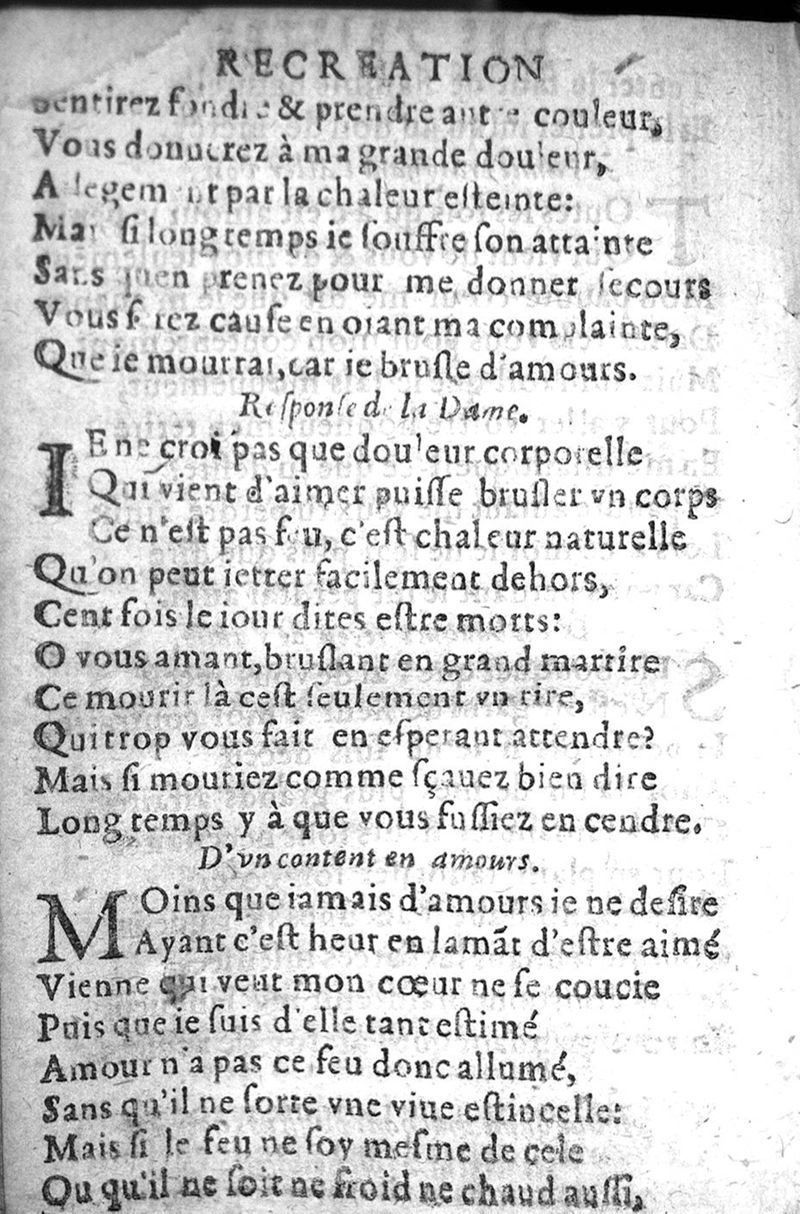 RECREATION
Sentirez fondre & prendre autre couleur,
Vous donnerez à ma grande douleur,
Alegement par la chaleur esteinte:
Mais si long temps ie souffre son attainte
Sans prenez pour me donner secours
Vous serez cause en oiant ma complainte,
Que ie mourrai, car ie brusle d'amours.
Response de la Dame.
IE ne croi pas que douleur corporelle
Qui vient d'aimer puisse brusler vn corps
Ce n'est pas feu, c'est chaleur naturelle
Qu'on peut ietter facilement dehors,
Cent fois le iour dites estre morts:
O vous amant, bruslant en grand martire
Ce mourir là cest seulement vn rire,
Qui trop vous fait en esperant attendre?
Mais si mouriez comme sçauez bien dire
Long temps y à que vous fussiez en cendre.
D'vn content en amours.
MOins que iamais d'amours ie ne desire
Ayant c'est heur en lamāt d'estre aimé
Vienne qui veut mon cœur ne se coucie
Puis que ie suis d'elle tant estimé
Amour n'a pas ce feu donc allumé,
Sans qu'il ne sorte vne viue estincelle:
Mais si le feu ne soy mesme de cele
Ou qu'il ne soit ne froid ne chaud aussi,